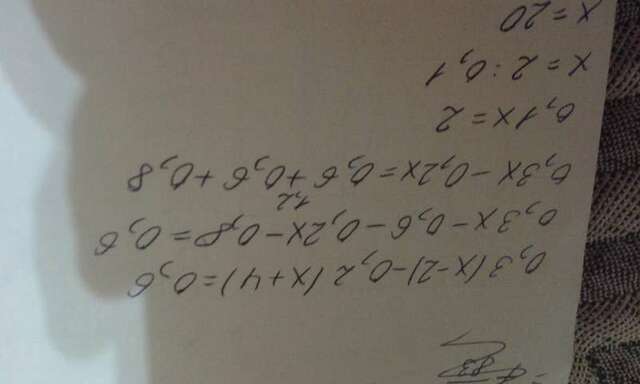 83
0,3(x-2)-0,2(x+4)=0,6
0,3x-0,6-0,2x-0,8=0,6
1,2
0,3x-0,2x=0,6+0,6+0,8
0,1x=2
x=2:0,1
x=20